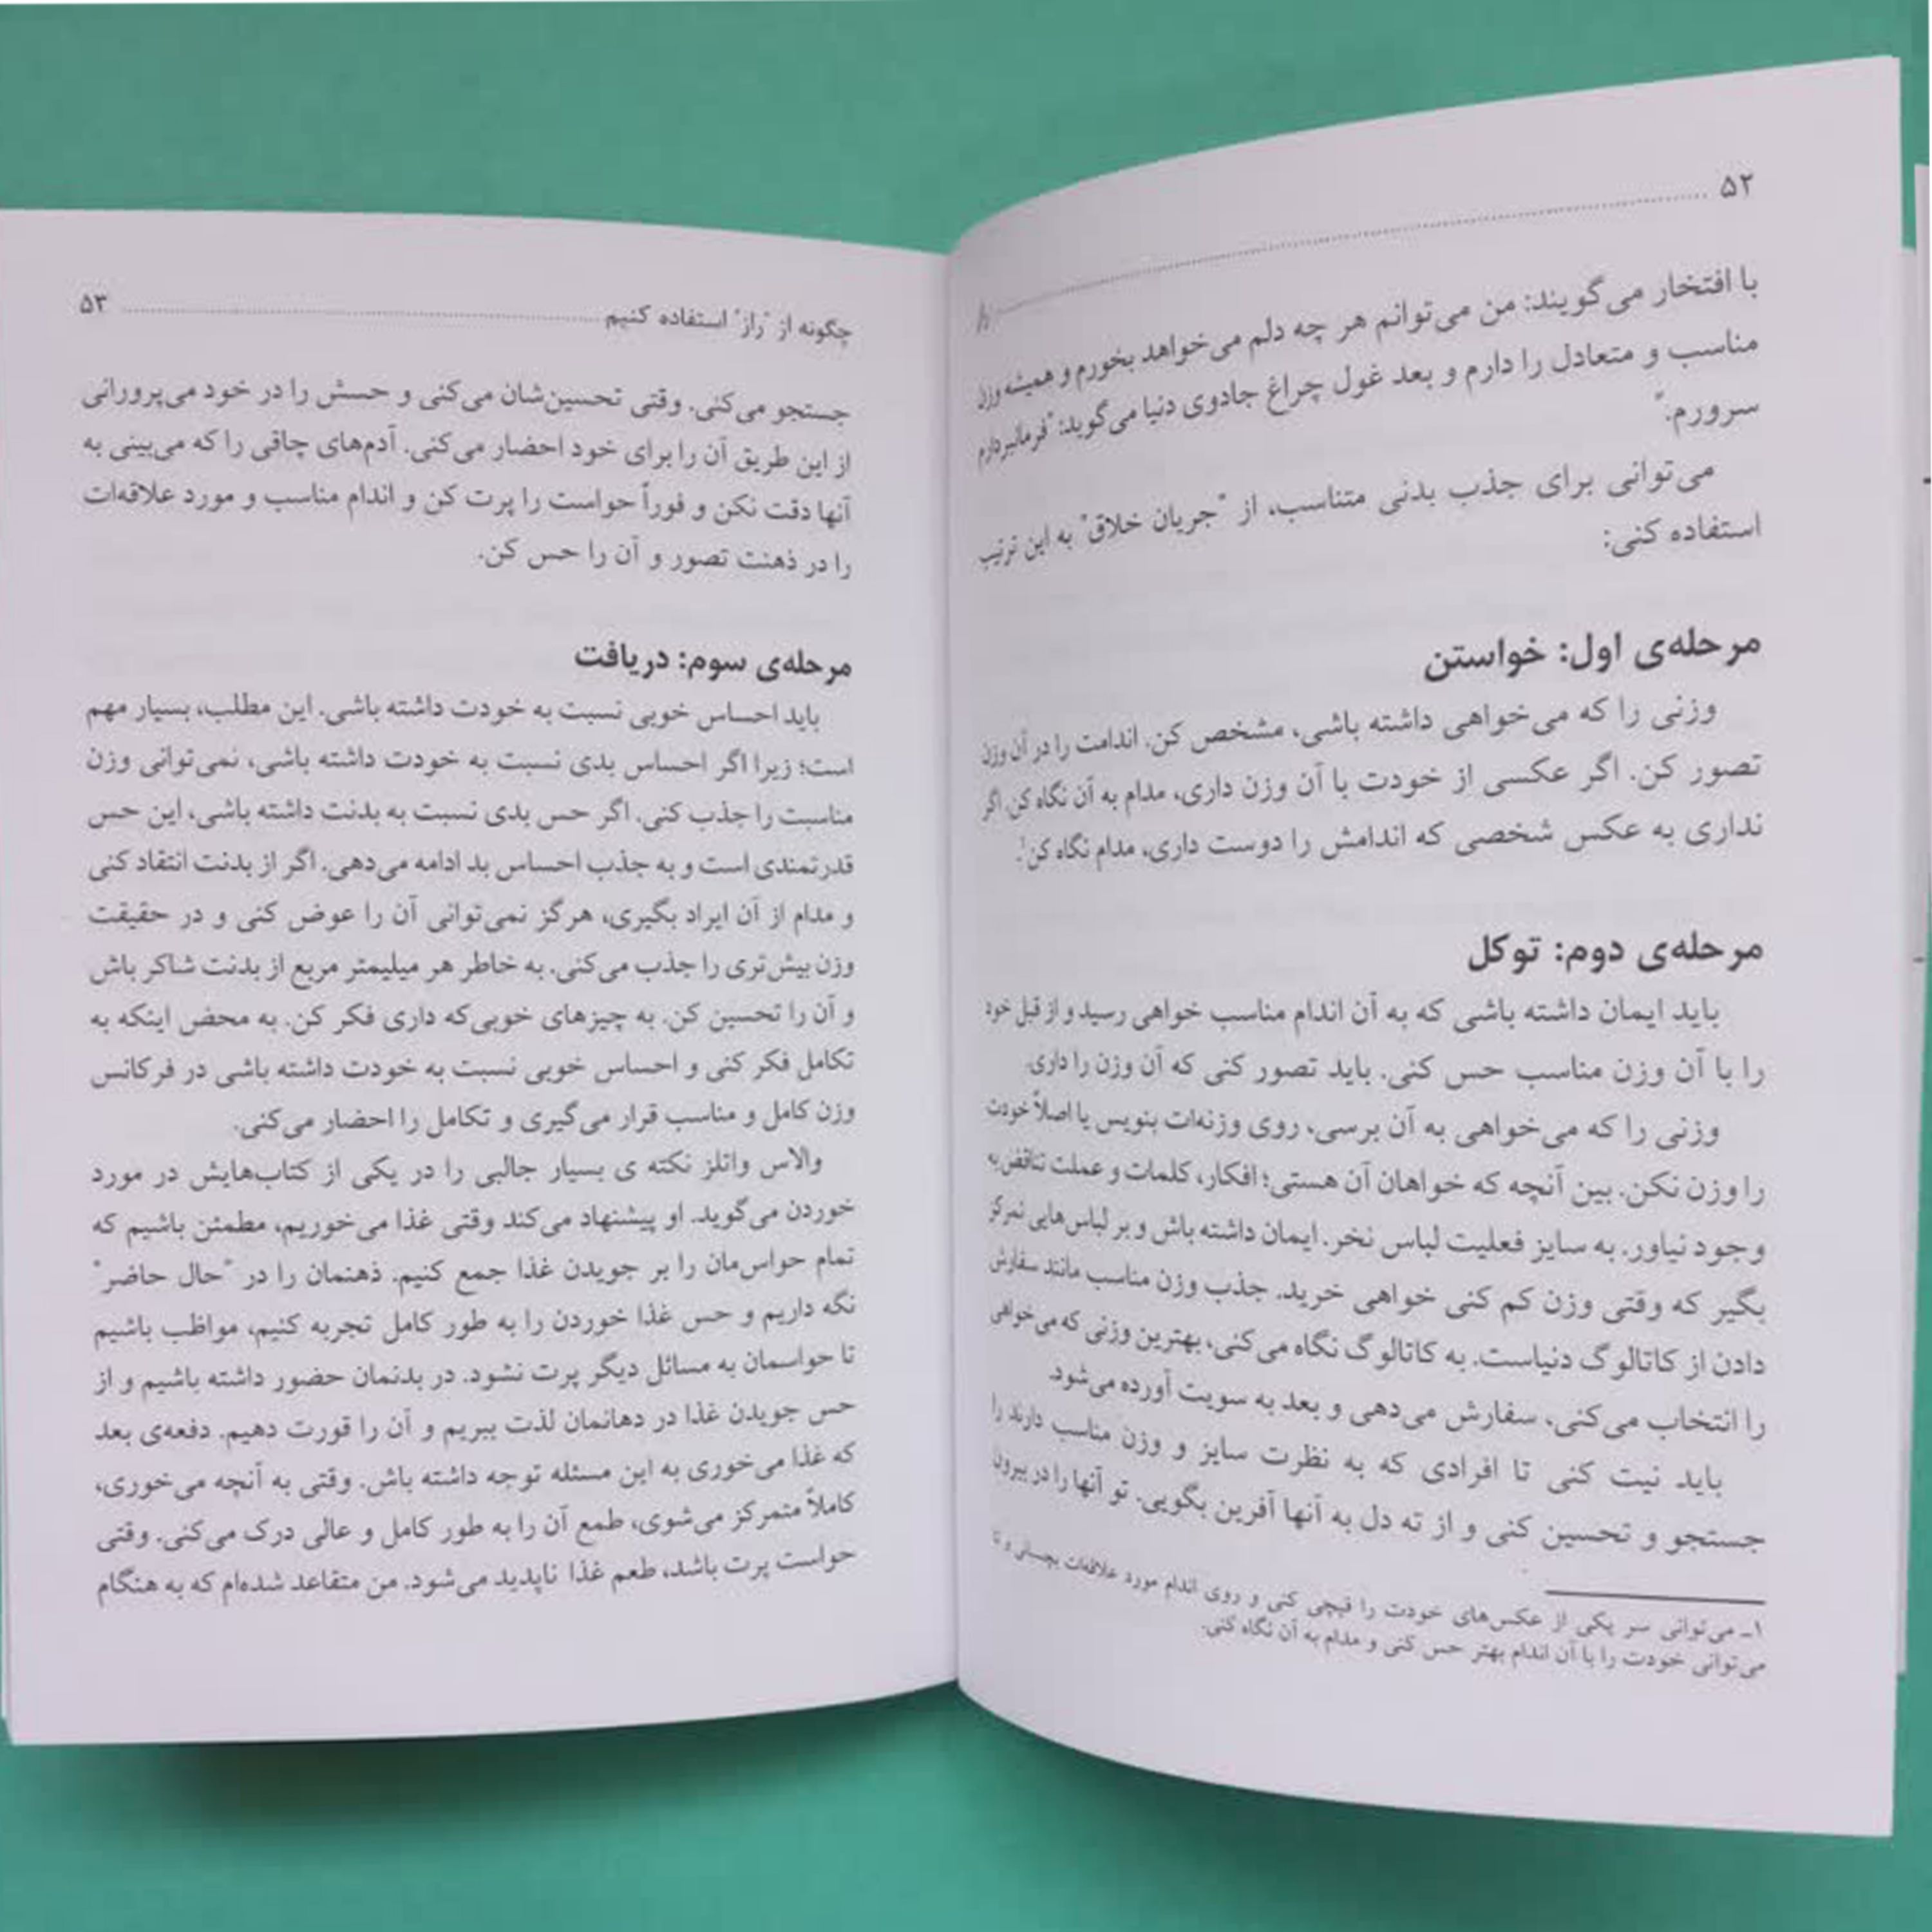 ۵۲
با افتخار می‌گویند: من می‌توانم هر چه دلم می‌خواهد بخورم و همیشه وزن
مناسب و متعادل را دارم و بعد غول چراغ جادوی دنیا می‌گوید: "فرمانبردارم
سرورم."
می‌توانی برای جذب بدنی متناسب، از "جریان خلاق" به این ترتیب
استفاده کنی:
مرحله‌ی اول: خواستن
وزنی را که می‌خواهی داشته باشی، مشخص کن. اندامت را در آن وزن
تصور کن. اگر عکسی از خودت با آن وزن داری، مدام به آن نگاه کن. اگر
نداری به عکس شخصی که اندامش را دوست داری، مدام نگاه کن.۱
مرحله‌ی دوم: توکل
باید ایمان داشته باشی که به آن اندام مناسب خواهی رسید و از قبل خود
را با آن وزن مناسب حس کنی. باید تصور کنی که آن وزن را داری.
وزنی را که می‌خواهی به آن برسی، روی وزنه‌ات بنویس یا اصلاً خودت
را وزن نکن. بین آنچه که خواهان آن هستی؛ افکار، کلمات و عملت تناقض به
وجود نیاور. به سایز فعلیت لباس نخر. ایمان داشته باش و بر لباس‌هایی تمرکز
بگیر که وقتی وزن کم کنی خواهی خرید. جذب وزن مناسب مانند سفارش
دادن از کاتالوگ دنیاست. به کاتالوگ نگاه می‌کنی، بهترین وزنی که می‌خواهی
را انتخاب می‌کنی، سفارش می‌دهی و بعد به سویت آورده می‌شود.
باید نیت کنی تا افرادی که به نظرت سایز و وزن مناسب دارند را
جستجو و تحسین کنی و از ته دل به آنها آفرین بگویی. تو آنها را در بیرون
۱ـ می‌توانی سر یکی از عکس‌های خودت را قیچی کنی و روی اندام مورد علاقه‌ات بچسبانی و تا
می‌توانی خودت را با آن اندام بهتر حس کنی و مدام به آن نگاه کنی.
چگونه از "راز" استفاده کنیم ۵۳
جستجو می‌کنی. وقتی تحسین‌شان می‌کنی و حسش را در خود می‌پرورانی
از این طریق آن را برای خود احضار می‌کنی. آدم‌های چاقی را که می‌بینی به
آنها دقت نکن و فوراً حواست را پرت کن و اندام مناسب و مورد علاقه‌ات
را در ذهنت تصور و آن را حس کن.
مرحله‌ی سوم: دریافت
باید احساس خوبی نسبت به خودت داشته باشی. این مطلب، بسیار مهم
است؛ زیرا اگر احساس بدی نسبت به خودت داشته باشی، نمی‌توانی وزن
مناسبت را جذب کنی. اگر حس بدی نسبت به بدنت داشته باشی، این حس
قدرتمندی است و به جذب احساس بد ادامه می‌دهی. اگر از بدنت انتقاد کنی
و مدام از آن ایراد بگیری، هرگز نمی‌توانی آن را عوض کنی و در حقیقت
وزن بیش‌تری را جذب می‌کنی. به خاطر هر میلیمتر مربع از بدنت شاکر باش
و آن را تحسین کن. به چیزهای خوبی‌که داری فکر کن. به محض اینکه به
تکامل فکر کنی و احساس خوبی نسبت به خودت داشته باشی در فرکانس
وزن کامل و مناسب قرار می‌گیری و تکامل را احضار می‌کنی.
والاس واتلز نکته ی بسیار جالبی را در یکی از کتاب‌هایش در مورد
خوردن می‌گوید. او پیشنهاد می‌کند وقتی غذا می‌خوریم، مطمئن باشیم که
تمام حواس‌مان را بر جویدن غذا جمع کنیم. ذهنمان را در "حال حاضر"
نگه داریم و حس غذا خوردن را به طور کامل تجربه کنیم، مواظب باشیم
تا حواسمان به مسائل دیگر پرت نشود. در بدنمان حضور داشته باشیم و از
حس جویدن غذا در دهانمان لذت ببریم و آن را قورت دهیم. دفعه‌ی بعد
که غذا می‌خوری به این مسئله توجه داشته باش. وقتی به آنچه می‌خوری،
کاملاً متمرکز می‌شوی، طمع آن را به طور کامل و عالی درک می‌کنی. وقتی
حواست پرت باشد، طعم غذا ناپدید می‌شود. من متقاعد شده‌ام که به هنگام